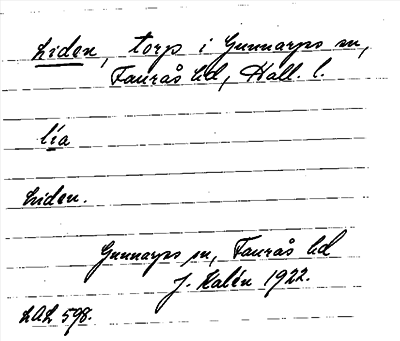 Liden, torp i Gunnarps sn,
Faurås hd, Hall. l.
lia
Liden.
Gunnarps sn, Faurås hd
J. Kalén 1922.
LAL 598.